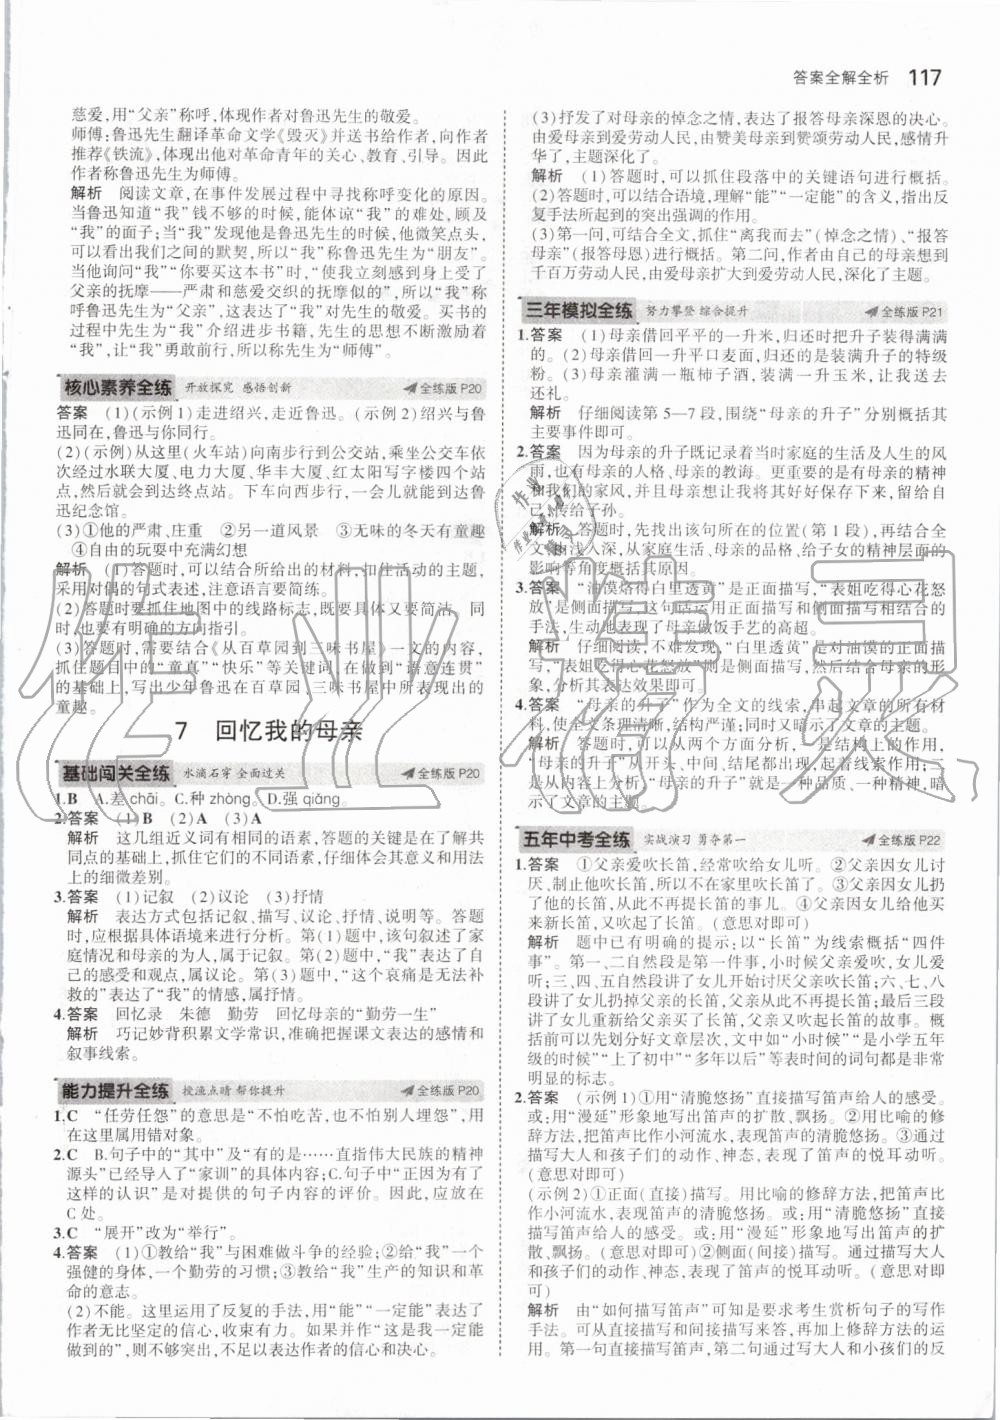 答案全解全析 117
慈爱,用“父亲”称呼,体现作者对鲁迅先生的敬爱。
师傅:鲁迅先生翻译革命文学《毁灭》并送书给作者,向作者
推荐《铁流》,体现出他对革命青年的关心、教育、引导。因此
作者称鲁迅先生为师傅。
解析 阅读文章,在事件发展过程中寻找称呼变化的原因。
当鲁迅知道“我”钱不够的时候,能体谅“我”的难处,顾及
“我”的面子;当“我”发现他是鲁迅先生的时候,他微笑点头,
可以看出我们之间的默契,所以“我”称鲁迅先生为“朋友”。
当他询问“我”“你要买这本书”时,“使我立刻感到身上受了
父亲的抚摩——严肃和慈爱交织的抚摩似的”,所以“我”称
呼鲁迅先生为“父亲”,这表达了“我”对先生的敬爱。买书的
过程中先生为“我”介绍进步书籍,先生的思想不断激励着
“我”,让“我”勇敢前行,所以称先生为“师傅”。
核心素养全练 开放探究 感悟创新 全练版 P20
答案 (1)(示例1)走进绍兴,走近鲁迅。(示例2)绍兴与鲁
迅同在,鲁迅与你同行。
(2)(示例)从这里(火车站)向南步行到公交站,乘坐公交车依
次经过水联大厦、电力大厦、华丰大厦、红太阳写字楼四个站
点,然后就会到达终点站。下车向西步行,一会儿就能到达鲁
迅纪念馆。
(3)①他的严肃、庄重 ②另一道风景 ③无味的冬天有童趣
④自由的玩耍中充满幻想
解析 (1)答题时,可以结合所给出的材料,扣住活动的主题,
采用对偶的句式表述,注意语言要简练。
(2)答题时要抓住地图中的线路标志,既要具体又要简洁。同
时,也要有明确的方向指引。
(3)答题时,需要结合《从百草园到三味书屋》一文的内容,
抓住题目中的“童真”“快乐”等关键词,在做到“语意连贯”
的基础上,写出少年鲁迅在百草园、三味书屋中所表现出的
童趣。
7 回忆我的母亲
基础闯关全练 水滴石穿 全面过关 全练版 P20
1.B A.差 chāi。C.种 zhòng。D.强 qiǎng。
2.答案 (1)B (2)A (3)A
解析 这几组近义词有相同的语素,答题的关键是在了解共
同点的基础上,抓住它们不同的语素,仔细体会其意义和用法
上的细微差别。
3.答案 (1)记叙 (2)议论 (3)抒情
解析 表达方式包括记叙、描写、议论、抒情、说明等。答题
时,应根据具体语境来进行分析。第(1)题中,该句叙述了家
庭情况和母亲的为人,属于记叙。第(2)题中,“我”表达了自
己的感受和观点,属议论。第(3)题中,“这个哀痛是无法补
救的”表达了“我”的情感,属抒情。
4.答案 回忆录 朱德 勤劳 回忆母亲的“勤劳一生”
解析 巧记妙背积累文学常识,准确把握课文表达的感情和
叙事线索。
能力提升全练 授渔点睛 帮你提升 全练版 P20
1.C “任劳任怨”的意思是“不怕吃苦,也不怕别人埋怨”,用
在这里属用错对象。
2.C B.句子中的“其中”及“有的是……直指伟大民族的精神
源头”已经导入了“家训”的具体内容;C.句子中“正因为有了
这样的认识”是对提供的句子内容的评价。因此,应放在
C处。
3.C “展开”改为“举行”。
4.答案 (1)①教给“我”与困难做斗争的经验;②给“我”一个
强健的身体,一个勤劳的习惯;③教给“我”生产的知识和革
命的意志。
(2)不能。这里运用了反复的手法,用“能”“一定能”表达了
作者无比坚定的信心,收束有力。如果并作“这是我一定能
做到的”,则不够坚决,不足以表达作者的信心和决心。
(3)抒发了对母亲的悼念之情,表达了报答母亲深恩的决心。
由爱母亲到爱劳动人民,由赞美母亲到赞颂劳动人民,感情升
华了,主题深化了。
解析 (1)答题时,可以抓住段落中的关键语句进行概括。
(2)答题时,可以结合语境,理解“能”“一定能”的含义,指出反
复手法所起到的突出强调的作用。
(3)第一问,可结合全文,抓住“离我而去”(悼念之情)、“报答
母亲”(报答母恩)进行概括。第二问,作者由自己的母亲想到
千百万劳动母亲,从爱母亲扩大到爱劳动人民,深化了主题。
三年模拟全练 努力攀登 综合提升 全练版 P21
1.答案 (1)母亲借回平平的一升米,归还时把升子装得满满
的。(2)母亲借回一升平口麦面,归还的是装满升子的特级
粉。(3)母亲灌满一瓶柿子酒,装一升子大枣,让我去送
还礼。
解析 仔细阅读第5—7段,围绕“母亲的升子”分别概括其
主要事件即可。
2.答案 因为母亲的升子既记录着当时家庭的生活及人生的风
雨,也有母亲的人格、母亲的教诲。更重要的是有母亲的精神
和我们的家风,并且母亲想让我将其好好保存下来,留给自
己,传给子孙。
解析 答题时,先找出该句所在的位置(第1段),再结合全
文,由浅入深,从家庭生活、母亲的品格、给子女的精神层面的
影响等角度概括其原因。
3.答案 “油馍烙得白里透黄”是正面描写,“表姐吃得心花怒
放”是侧面描写,这句话运用正面描写和侧面描写相结合的
手法,生动地表现了母亲做饭手艺的高超。
解析 仔细阅读,不难发现,“白里透黄”是对油馍的正面描
写,“表姐吃得心花怒放”则是侧面描写,然后结合母亲的形
象,分析其表达效果即可。
4.答案 “母亲的升子”作为全文的线索,串起文章的所有材
料,使全文条理清晰,结构严谨;同时又暗示了文章的主题。
解析 答题时,可以从两个方面分析,一是结构上的作用,
“母亲的升子”从开头、中间、结尾都出现,有贯穿全文的作
用;二是主题上,“母亲的升子”是一种品质,一种精神,暗
示了文章的主题。
五年中考全练 实战演习 勇夺第一 全练版 P22
1.答案 ①父亲爱吹长笛,经常吹给女儿听。②父亲因女儿讨
厌、制止他吹长笛,所以不在家里吹长笛了。③父亲因女儿扔
了他的长笛,从此不再提长笛的事儿。④父亲因女儿给他买
来新长笛,又吹起了长笛。(意思对即可)
解析 题中已有明确的提示:以“长笛”为线索概括“四件
事”。第一、二自然段是第一件事,小时候父亲爱吹,女儿爱
听;三、四、五自然段讲了女儿开始讨厌父亲吹长笛;六、七、八
段讲了女儿扔掉父亲的长笛,父亲从此不再提长笛;最后三段
讲了女儿重新给父亲买了长笛,父亲又吹起长笛的故事。概
括前可以先划分好文章层次,文中如“小时候”“是小学五年
级的时候”“上了初中”“多年以后”等表时间的词句都是非常
明显的标志。
2.答案 (示例1)①用“清脆悠扬”直接描写笛声给人的感受。
或:用“漫延”形象地写出笛声的扩散、飘扬。②用比喻的修
辞方法,把笛声比作小河流水,表现笛声的清脆悠扬。③通过
描写大人和孩子们的动作、神态,表现了笛声的悦耳动听。
(意思对即可)
(示例2)①正面(直接)描写。用比喻的修辞方法,把笛声比
作小河流水,表现笛声的清脆悠扬。或:用“清脆悠扬”直接
描写笛声给人的感受。或:用“漫延”形象地写出笛声的扩
散、飘扬。(意思对即可)②侧面(间接)描写。通过描写大人
和孩子们的动作、神态,表现了笛声的悦耳动听。(意思对即
可)
解析 由“如何描写笛声”可知是要求考生赏析句子的写作
手法。可从直接描写和间接描写来答,再加上修辞方法的运
用。第一句直接描写笛声,第二句通过写大人和小孩们的反